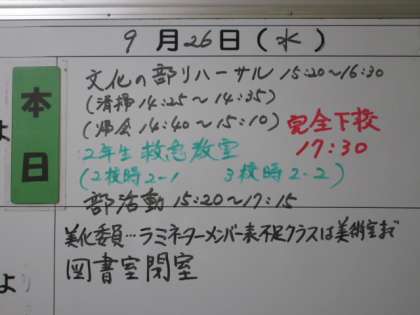 9月26日(水)
本日
文化の部リハーサル 15:20～16:30
(清掃 14:25～14:35)
(帰会 14:40～15:10)
完全下校
17:30
2年生 救急教室
(2校時 2-1 3校時 2-2)
部活動 15:20～17:15
美化委員…ラミネーターメンバー表不足クラスは美術室まで
図書室閉室
より